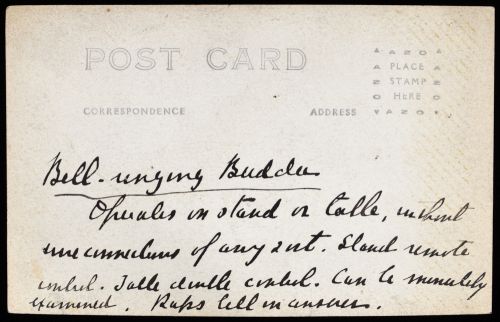 POST CARD
AZO
PLACE
STAMP
HERE
AZO
CORRESPONDENCE
ADDRESS
Bell-ringing Buddha
Operates on stand or table, without
wire connections of any sort. Stand remote
control. Table double control. Can be minutely
examined. Raps bell in answer.